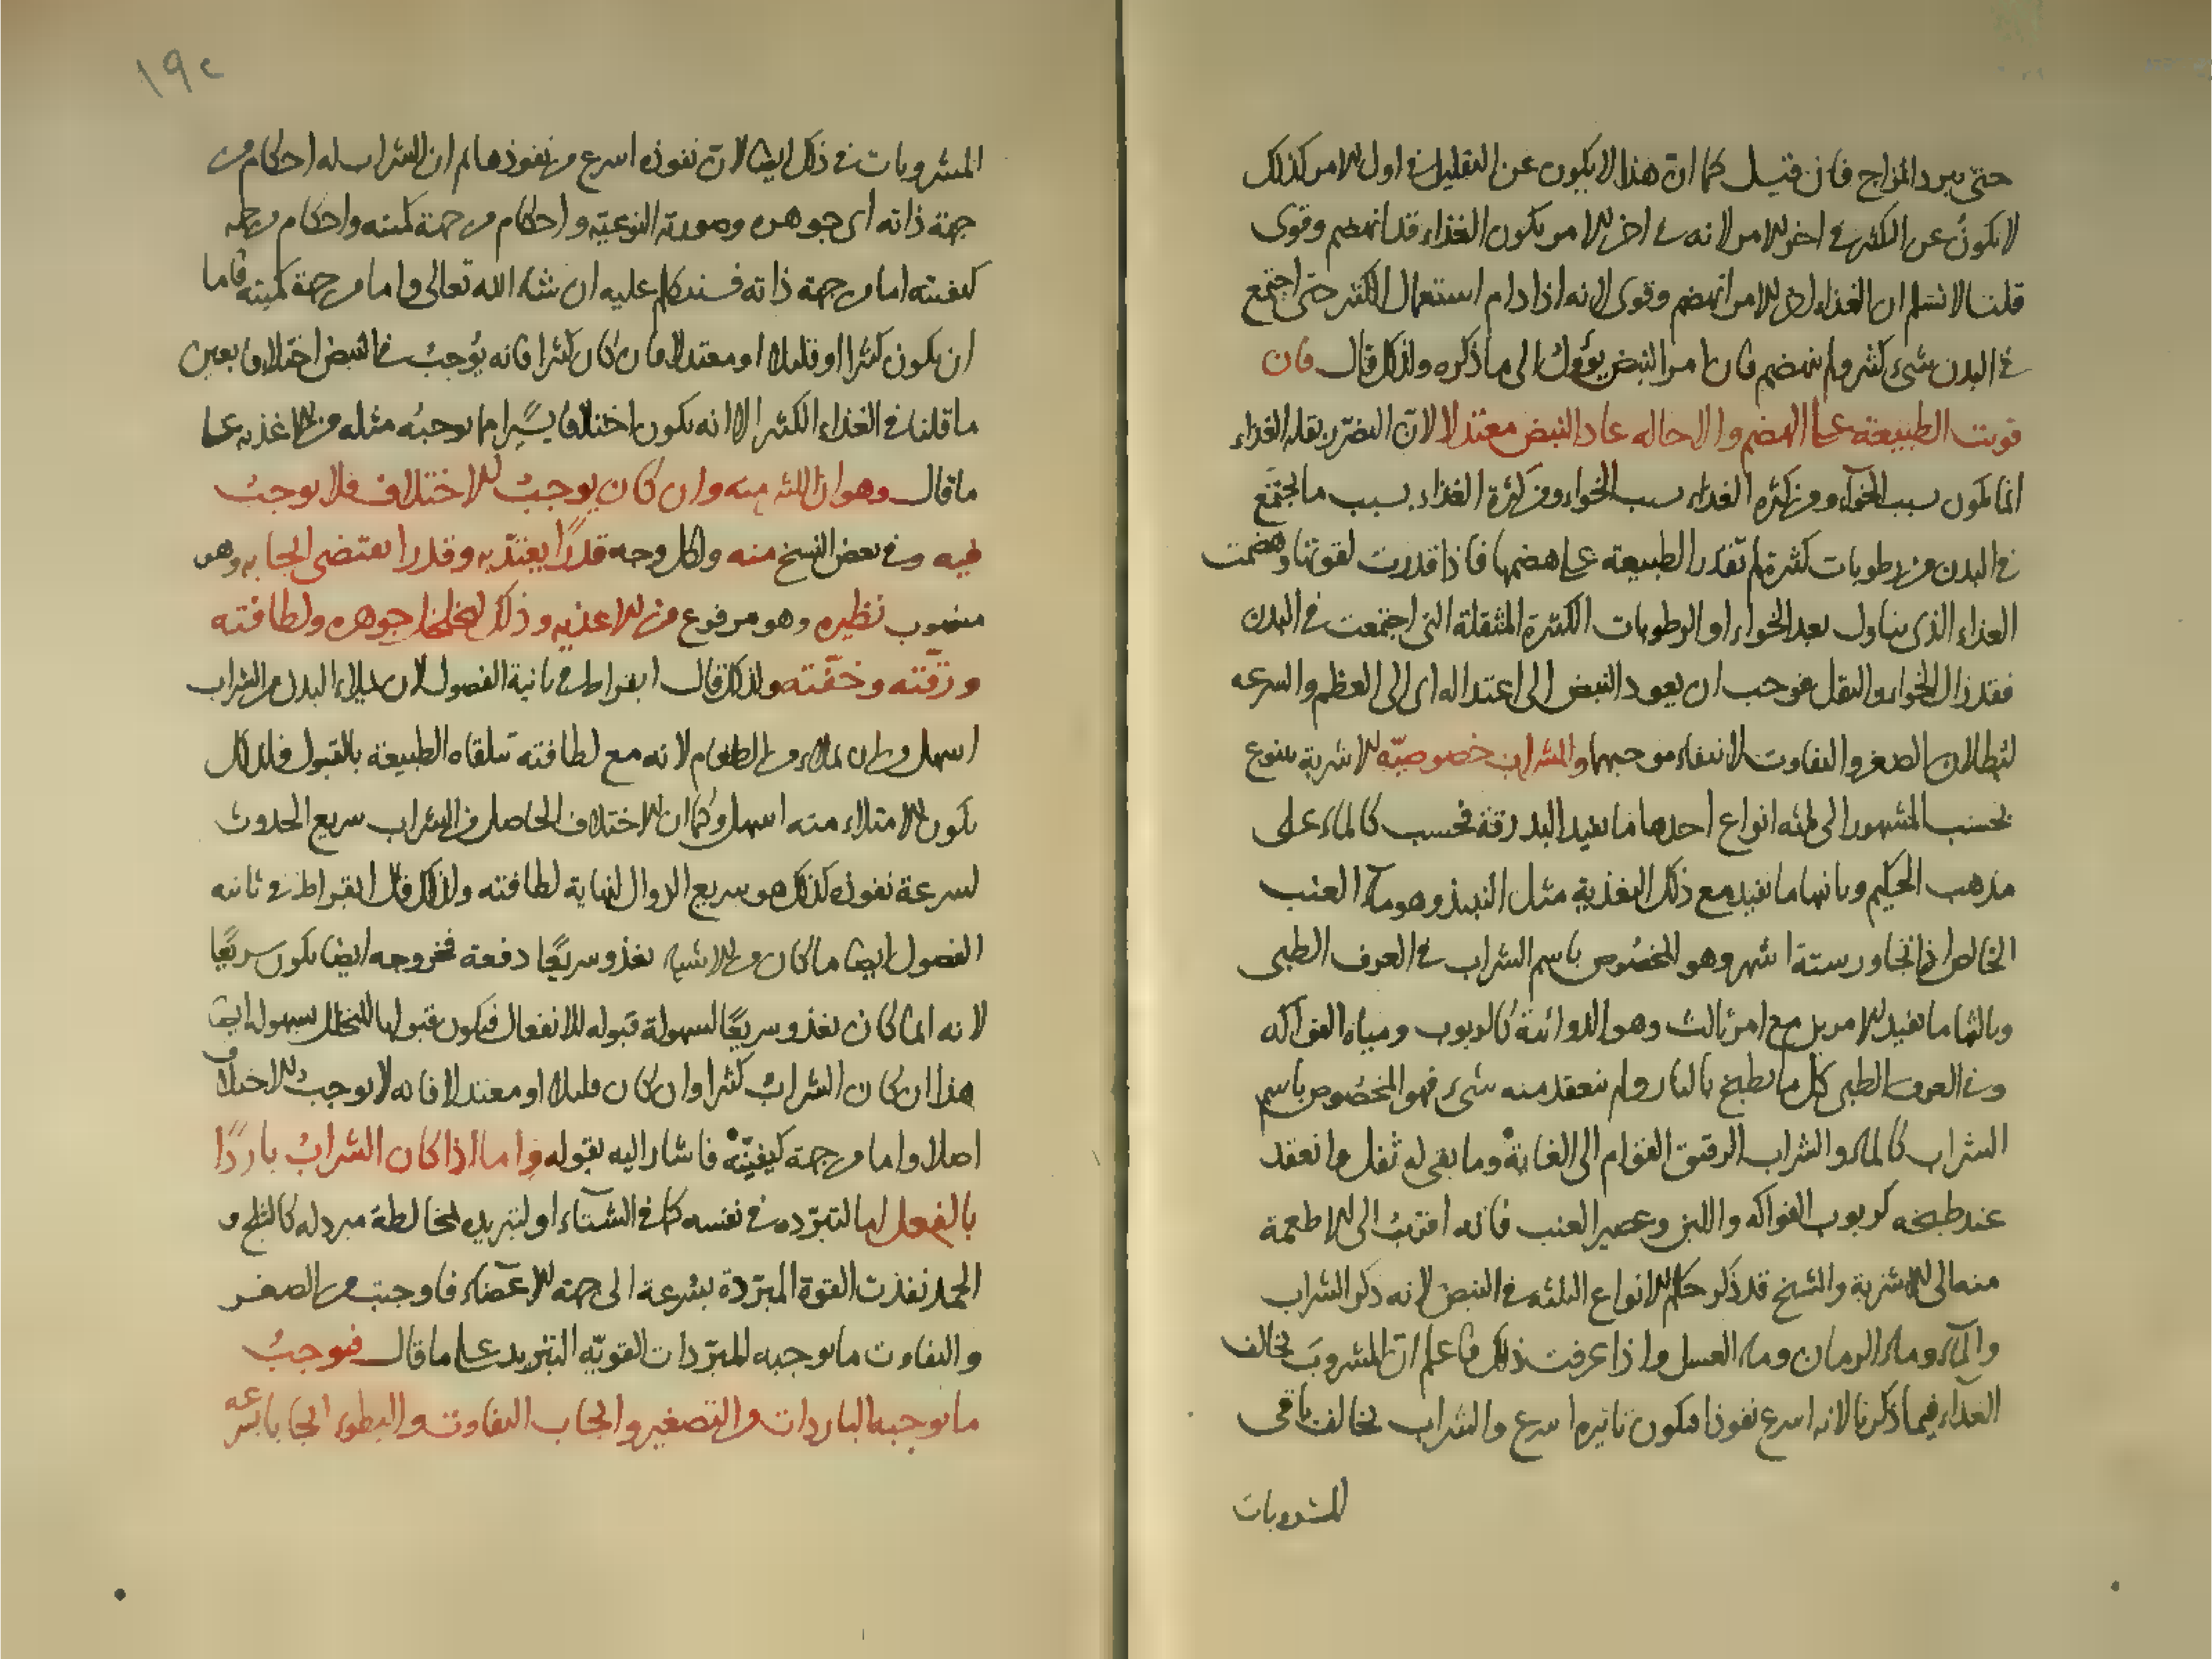 حتى يبرد المزاج فان قيل كما ان هذا لا يكون عن التقليل في اول الامر كذلك
لا يكون عن الكثير في اخر الامر لانه في اخر الامر يكون الغذاء قد انهضم وقوى
قلنا لا نسلم ان الغذاء في اخر الامر انهضم وقوى لانه اذا دام استعمال الكثير حتى اجتمع
في البدن شيء كثير ولم ينهضم فان امر النبض يؤول الى ما ذكره ولذلك قال فان
قويت الطبيعة على الهضم والاحاله عاد النبض معتدلا لان التضرر بقلة الغذاء
انما يكون بسبب الخواء ومن كثره الغذاء بسبب الخواء ومن كثرة الغذاء بسبب ما يجتمع
في البدن من رطوبات كثيرة لم تقدر الطبيعة على هضمها فاذا قدرت لقوتها وهضمت
الغذاء الذى يتناول بعد الخواء او الرطوبات الكثيرة المثقلة التى اجتمعت في البدن
فقد زال الخواء والثقل فوجب ان يعود النبض الى اعتداله اى الى العظم والسرعه
لبطلان الصغر والتفاوت لانتفاء موجبهما وللشراب خصوصيّه الاشربة يتنوع
بحسب المشهور الى ثلثه انواع احدها ما يفيد البدرقة فحسب كالماء على
مذهب الحكيم وثانيها ما يفيد مع ذلك التغذية مثل النبيذ وهو مآء العنب
الخالص اذا تجاوز ستة اشهر وهو المخصُوص باسم الشراب في العرف الطبى
وثالثها ما يفيد الامرين مع امر ثالث وهو الدوائية كالربوب ومياه الفواكه
وفي العرف الطبى كل ما يطبخ بالنار ولم ينعقد منه شيء فهو المخصُوص باسم
الشراب كالماء والشراب الرقيق القوام الى الغاية وما بقى له ثفل وانعقد
عند طبخه كربوب الفواكه واللبن وعصير العنب فانه اقربُ الى الاطعمة
منه الى الاشربة والشيخ قد ذكر حكم الانواع الثلثه في النبض لانه ذكر الشراب
والمآء وماء الرمان وماء العسل واذا عرفت ذلك فاعلم انّ المشروب يخالف
الغذاء فيما ذكرنا لانه اسرع نفوذا فيكون تاثيره اسرع والشراب يخالف باقى
المشروبات
١٩٢
المشروبات في ذلك ايضا لان نفوذه اسرع من نفوذها ثم ان الشراب له احكام من
جهة ذاته اى جوهره وصورته النوعيّه واحكام من جهة كميته واحكام من جهه
كيفيته اما من جهة ذاته فسنتكلم عليه ان شاء الله تعالى واما من جهة كميته فاما
ان يكون كثيرا او قليلا او معتدلا فان كان كثيرا فانه يُوجبُ في النبض اختلافا بعين
ما قلنا في الغذاء الكثير الا انه يكون اختلافا يسيرا مما يوجبُه مثله من الاغذيه على
ما قال وهو ان الكثير منه وان كان يوجبُ الاختلاف فلا يوجبُ
فيه وفي بعض النسخ منه ولكل وجه قدرًا يعتدّ به وقدرا يقتضى ايجابه وهو
منصوب نظيره وهو مرفوع من الاغذيه وذلك لتخلخل جوهره ولطافته
ورقّته وخفّته ولذلك قال ابقراط في ثانية الفصول لان يملاء البدن من الشراب
اسهل من ان يملاء من الطعام لانه مع لطافته تتلقاه الطبيعة بالقبول فلذلك
يكون الامتلاء منه اسهل وكما ان الاختلاف الحاصل من الشراب سريع الحدوث
لسرعة نفوذه كذلك هو سريع الزوال لنهاية لطافته ولذلك قال ابقراط في ثانيه
الفصول ايضا ما كان من الاشياء يغذو سريعًا دفعة فخروجه ايضا يكون سريعًا
لانه انما كان يغذو سريعًا لسهولة قبوله للانفعال فيكون قبولها للتحلل بسهوله ايضا
هذا ان كان الشرابُ كثيرا وان كان قليلا او معتدلا فانه لا يوجبُ الاختلاف
اصلا واما من جهة كيفيّته فاشار اليه بقوله واما اذا كان الشرابُ باردًا
بالفعل اما لتبرّده في نفسه كما في الشتآء او لتبريده لمخالطة مبرد له كالثلج و
الجمد نفذت القوة المبرّدة بسُرعة الى جهة الاعضاء فاوجبت من الصغر
والتفاوت ما يوجبه المبرّدات القويّه التبريد على ما قال فيوجبُ
ما يوجبه الباردات من التصغير وايجاب التفاوت والبطوء ايجابا بسرعه